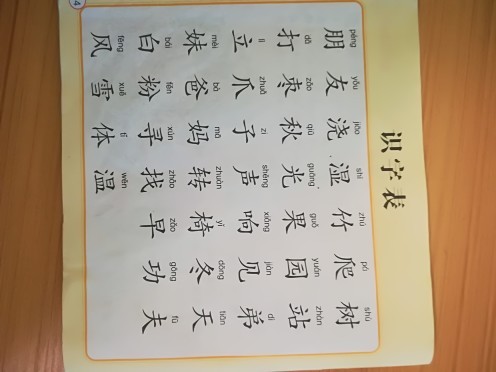 识字表
péng yǒu jiāo shī zhú pá shù
朋 友 浇 湿 竹 爬 树
dǎ zǎo qiū guāng guǒ yuán zhàn
打 枣 秋 光 果 园 站
lì zhuǎ zi shēng xiǎng jiàn dì
立 爪 子 声 响 见 弟
mèi bà mā zhuàn yǐ dōng tiān
妹 爸 妈 转 椅 冬 天
bái fěn xún zhǎo zǎo gōng fū
白 粉 寻 找 早 功 夫
fēng xuě tǐ wēn
风 雪 体 温